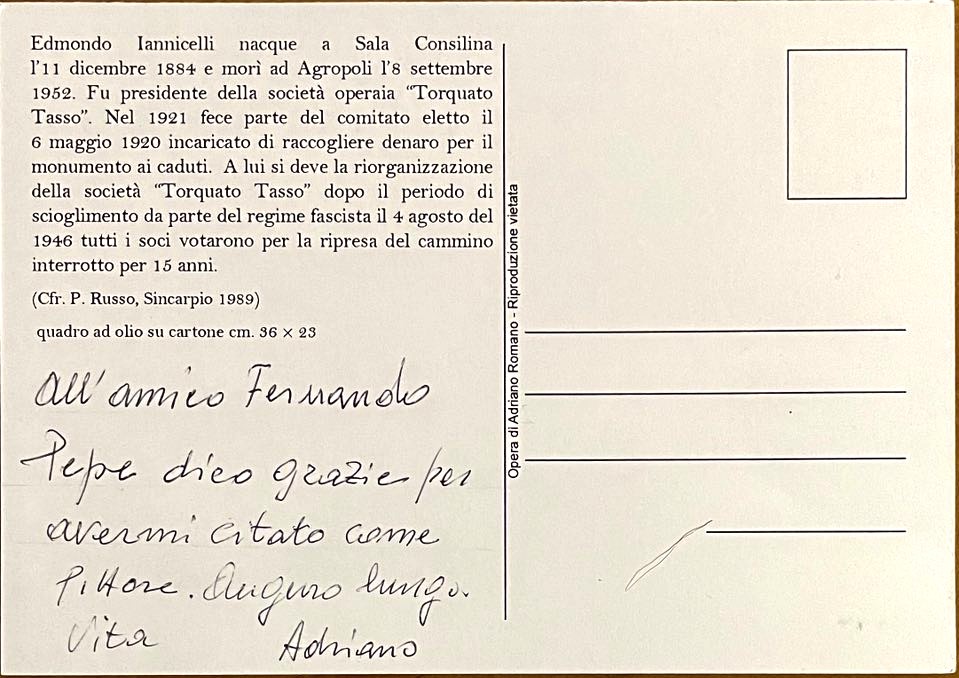 Edmondo Iannicelli nacque a Sala Consilina
l'11 dicembre 1884 e morì ad Agropoli l'8 settembre
1952. Fu presidente della società operaia “Torquato
Tasso”. Nel 1921 fece parte del comitato eletto il
6 maggio 1920 incaricato di raccogliere denaro per il
monumento ai caduti. A lui si deve la riorganizzazione
della società “Torquato Tasso” dopo il periodo di
scioglimento da parte del regime fascista il 4 agosto del
1946 tutti i soci votarono per la ripresa del cammino
interrotto per 15 anni.
(Cfr. P. Russo, Sincarpio 1989)
quadro ad olio su cartone cm. 36 × 23
all'amico Fernando
Pepe dico grazie per
avermi citato come
Pittore. Auguro lunga
Vita Adriano
Opera di Adriano Romano - Riproduzione vietata